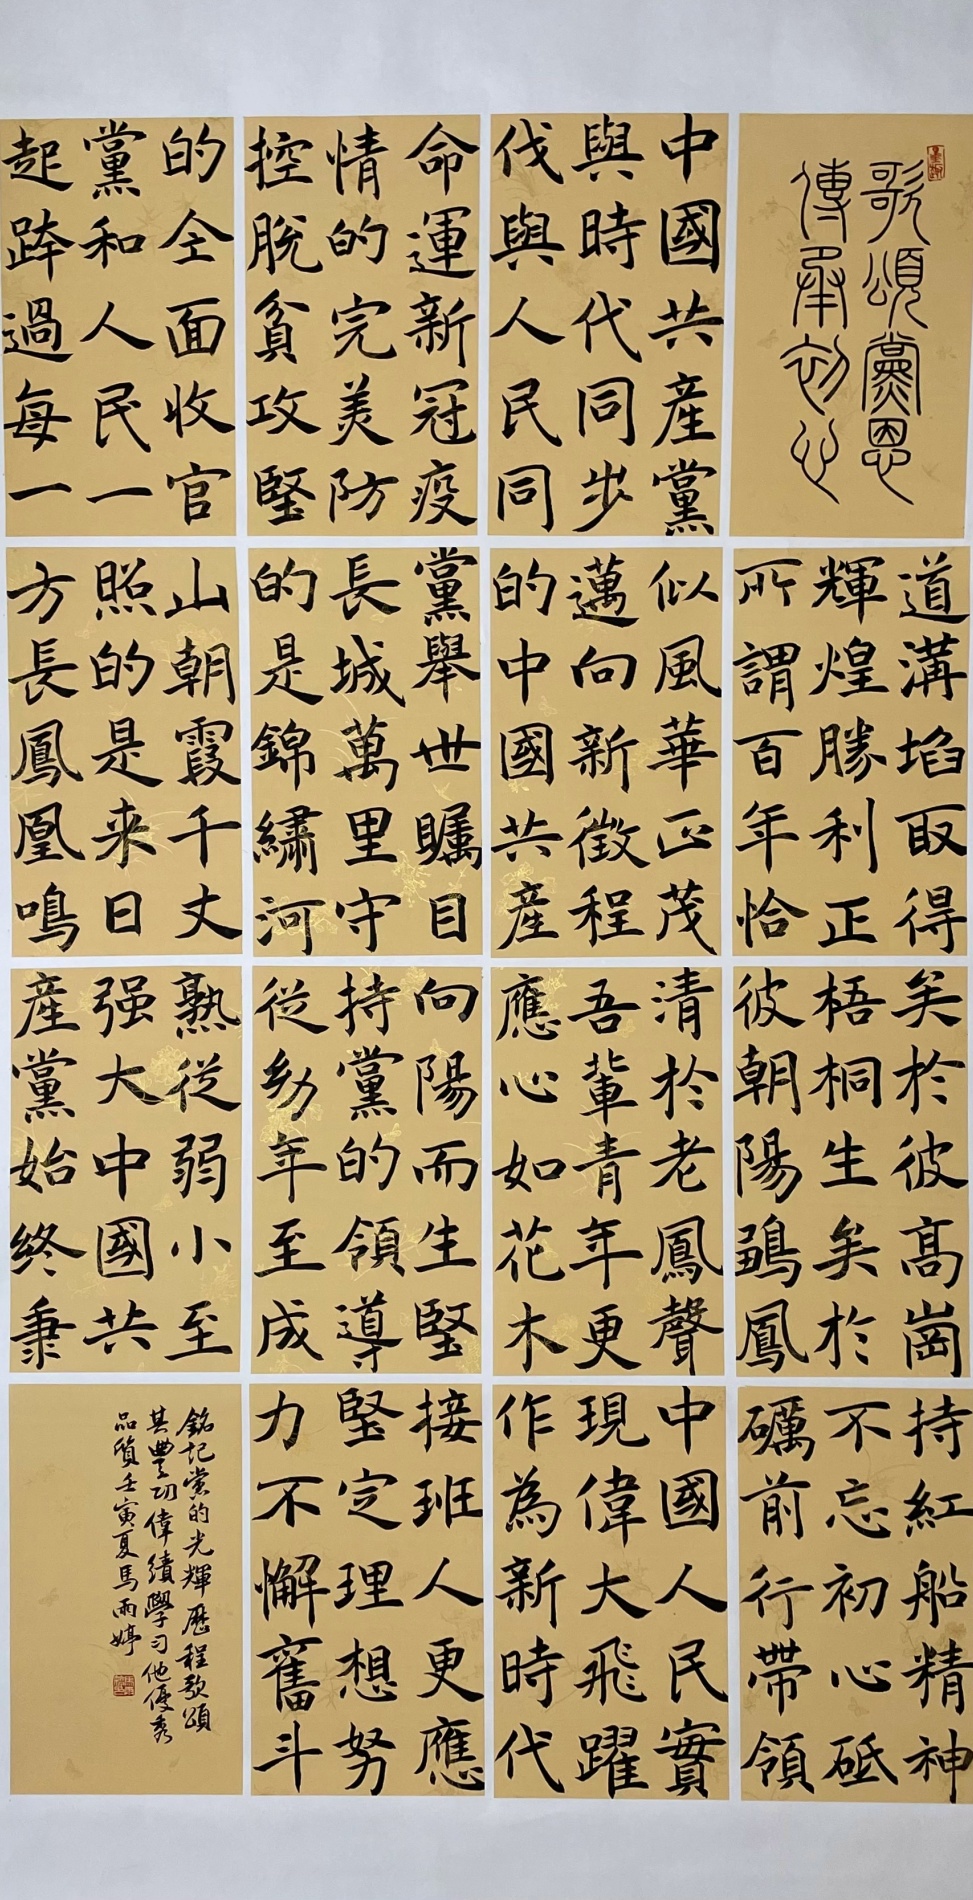 歌頌黨恩
傳承初心
中國共產黨
與時代同步
伐與人民同
命運新冠疫
情的完美防
控脫貧攻堅
的全面收官
黨和人民一
起跨過每一
道溝焰取得
輝煌勝利正
所謂百年恰
似風華正茂
邁向新徵程
的中國共產
黨舉世矚目
長城萬里守
的是錦繡河
山朝霞千丈
照的是来日
方長鳳凰鳴
矣於彼高崗
梧桐生矣於
彼朝陽鷂鳳
清於老鳳聲
吾輩青年更
應心如花木
向陽而生堅
持黨的領導
從幼年至成
熟從弱小至
强大中國共
產黨始終秉
持紅船精神
不忘初心砥
礪前行帶領
中國人民實
現偉大飛躍
作為新時代
接班人更應
堅定理想努
力不懈奮斗
銘記党的光輝歷程歌頌
其豐功偉績學习他優秀
品質壬寅夏馬雨婷